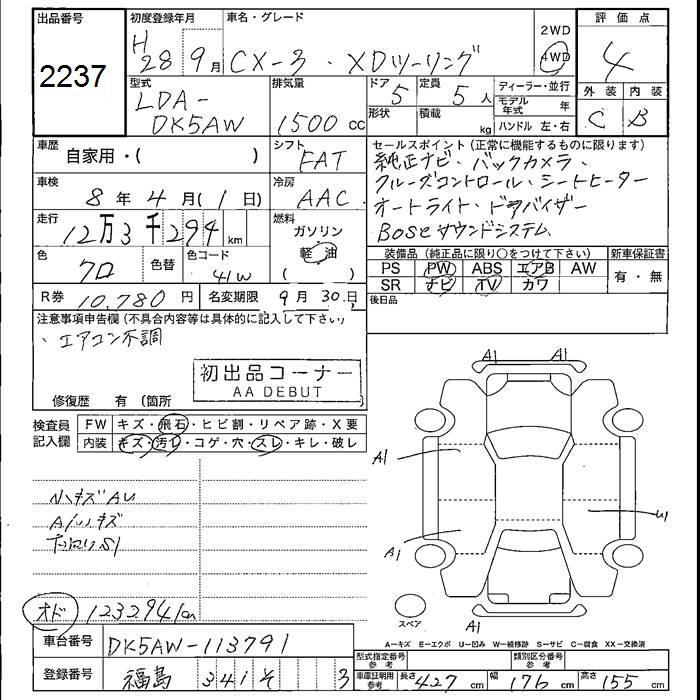 出品番号
2237
初度登録年月
H28 9月
車名・グレード
CX-3・XDツーリング
2WD
4WD
評価点
4
外装 内装
C B
型式
LDA-
DK5AW
排気量
1500 cc
ドア 5
形状
定員 5人
積載 kg
ディーラー・並行
モデル年式 年
ハンドル 左・右
車歴
自家用・( )
シフト
FAT
セールスポイント (正常に機能するものに限ります)
純正ナビ・バックカメラ、
クルーズコントロール・シートヒーター
オートライト・ドアバイザー
BOSEサウンドシステム
車検
8年4月(1日)
冷房
AAC
走行
12万3千294 km
燃料
ガソリン
軽油
( )
色
クロ
色替
色コード
41W
装備品 (純正品に限り○をつけて下さい)
PS PW ABS エアB AW
SR ナビ TV カワ
新車保証書
有・無
R券 10,780円
名変期限 9月30日
後日品
注意事項申告欄 (不具合内容等は具体的に記入して下さい)
、エアコン不調
初出品コーナー
AA DEBUT
修復歴 有 (箇所
検査員
記入欄
FW キズ・飛石・ヒビ割・リペア跡・X要
内装 キズ・汚レ・コゲ・穴・スレ・キレ・破レ
小キズAU
A/Wキズ
オド 123294km
A1 A1
A1
A1
U1
A1
スペア
A=キズ E=エクボ U=凹み W=補修跡 S=サビ C=腐食 XX=交換済
車台番号
DK5AW-113791
登録番号
福島 341 そ 3
型式指定番号 参考
類別区分番号 参考
車庫証明用 参考
長さ 427 cm
幅 176 cm
高さ 155 cm